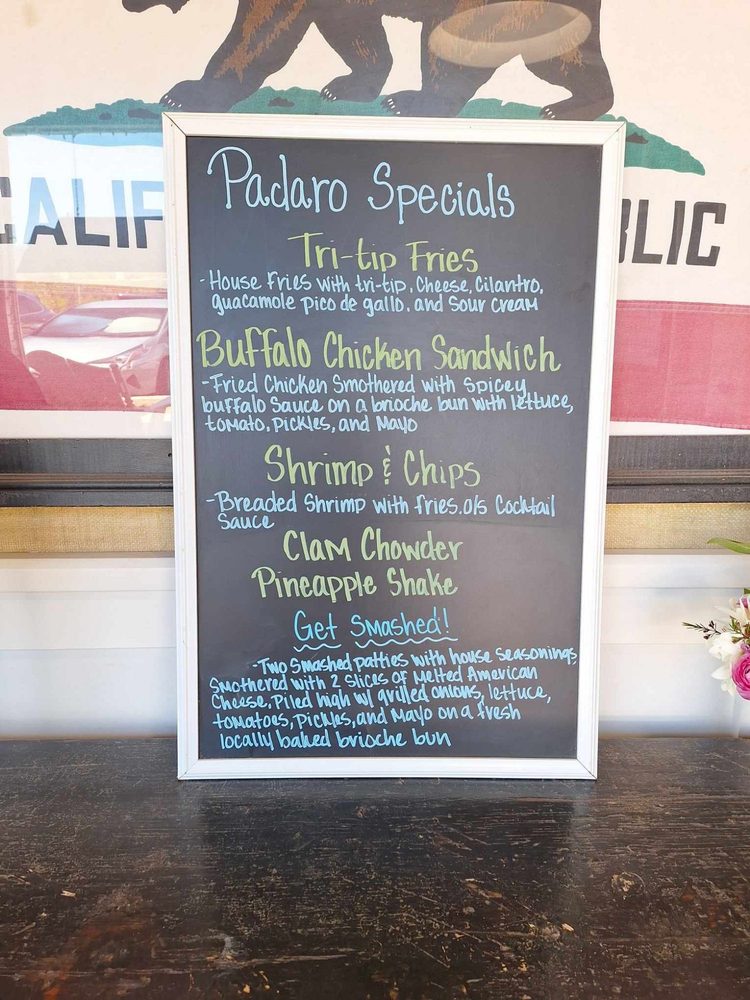 CALIF
BLIC
Padaro Specials
Tri-tip Fries
-House Fries with tri-tip, Cheese, Cilantro,
guacamole pico de gallo, and Sour Cream
Buffalo Chicken Sandwich
-Fried Chicken Smothered with Spicy
buffalo Sauce on a brioche bun with lettuce,
tomato, pickles, and Mayo
Shrimp & Chips
-Breaded Shrimp with fries. o/s Cocktail
Sauce
Clam Chowder
Pineapple Shake
Get Smashed!!
-Two Smashed patties with house Seasonings
Smothered with 2 Slices of Melted American
Cheese, Piled high w/ grilled onions, lettuce,
tomatoes, Pickles, and Mayo on a fresh
locally baked brioche bun